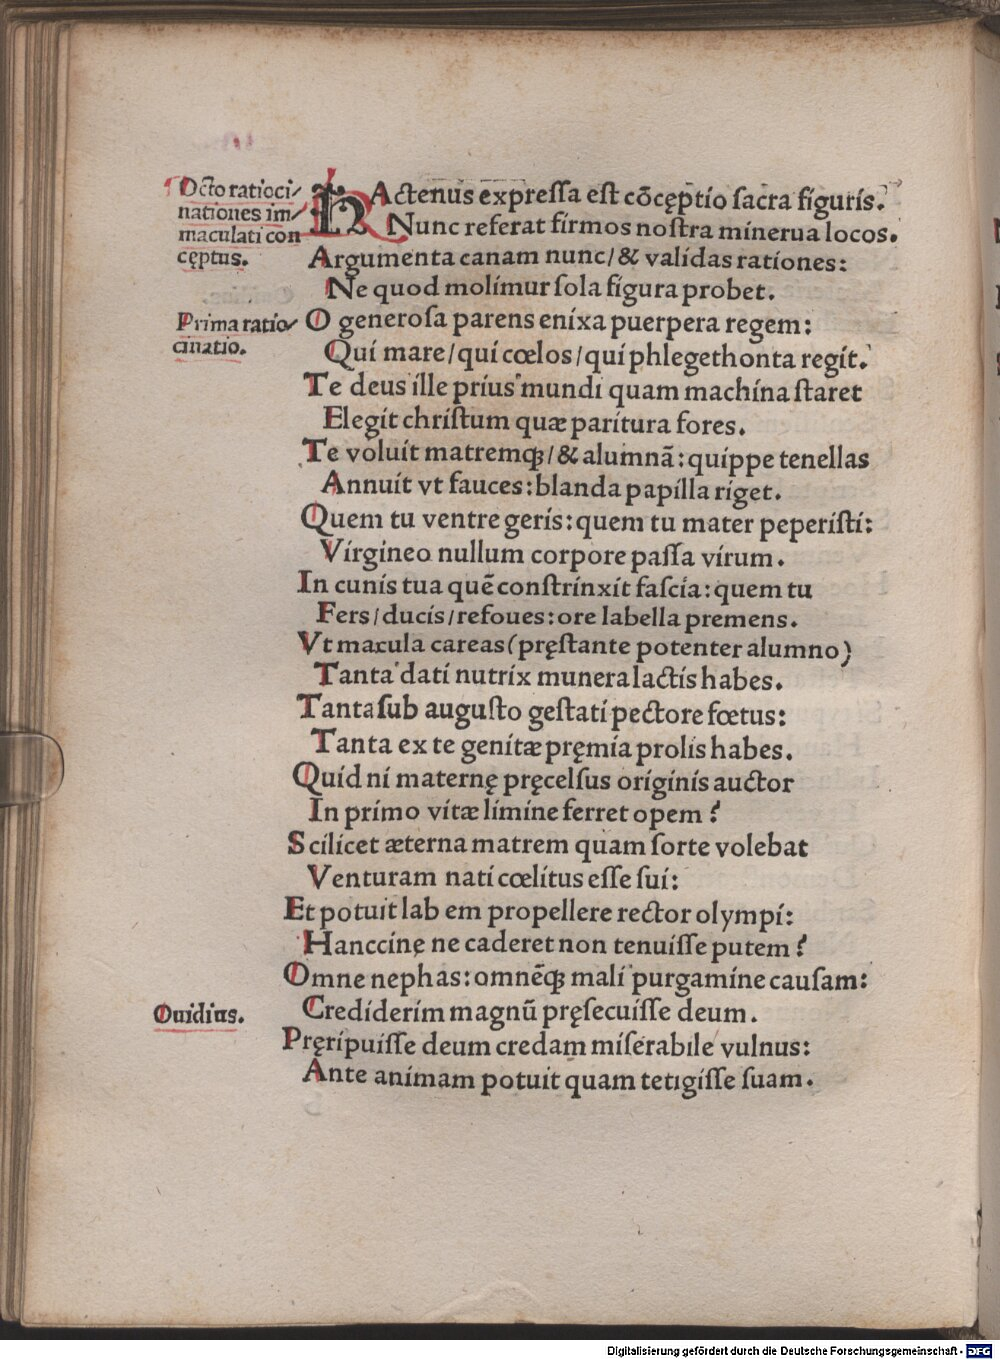 Octo ratioci/
nationes im/
maculati con
cęptus.
HActenus expreſſa eſt cõcęptio ſacra figuris.
Nunc referat firmos noſtra minerua locos.
Argumenta canam nunc/& validas rationes:
Ne quod molimur ſola figura probet.
Prima ratio/
cinatio.
O generoſa parens enixa puerpera regem:
Qui mare/qui cœlos/qui phlegethonta regit.
Te deus ille prius mundi quam machina ſtaret
Elegit chriſtum quæ paritura fores.
Te voluit matremqꝫ/& alumnã: quippe tenellas
Annuit vt fauces: blanda papilla riget.
Quem tu ventre geris: quem tu mater peperiſti:
Virgineo nullum corpore paſſa virum.
In cunis tua quẽ conſtrinxit faſcia: quem tu
Fers/ducis/refoues: ore labella premens.
Vt macula careas (pręſtante potenter alumno)
Tanta dati nutrix munera lactis habes.
Tanta ſub auguſto geſtati pectore fœtus:
Tanta ex te genitæ pręmia prolis habes.
Quid ni maternę pręcelſus originis auctor
In primo vitæ limine ferret opem?
Scilicet æterna matrem quam ſorte volebat
Venturam nati cœlitus eſſe ſui:
Et potuit lab em propellere rector olympi:
Hanccinę ne caderet non tenuiſſe putem?
Omne nephas: omnẽqꝫ mali purgamine cauſam:
Ouidius.
Crediderim magnũ pręſecuiſſe deum.
Pręripuiſſe deum credam miſerabile vulnus:
Ante animam potuit quam tetigiſſe ſuam.
Digitalisierung gefördert durch die Deutsche Forschungsgemeinschaft - DFG